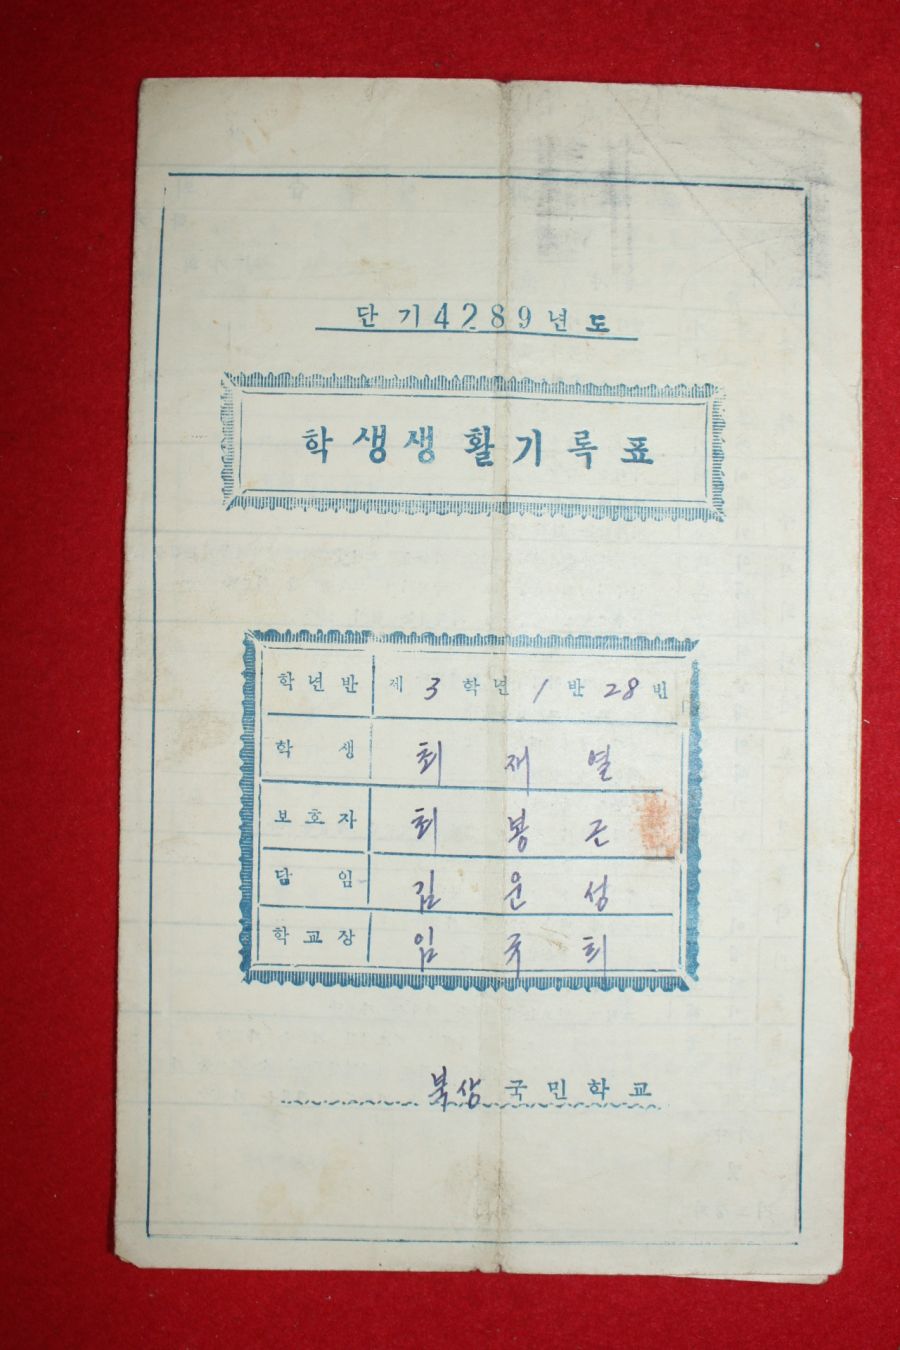 단기 4289년도
학생생활기록표
학년반 제 3 학년 1 반 28 번
학생 최재열
보호자 최봉근
담임 김운성
학교장 임국희
북상 국민학교